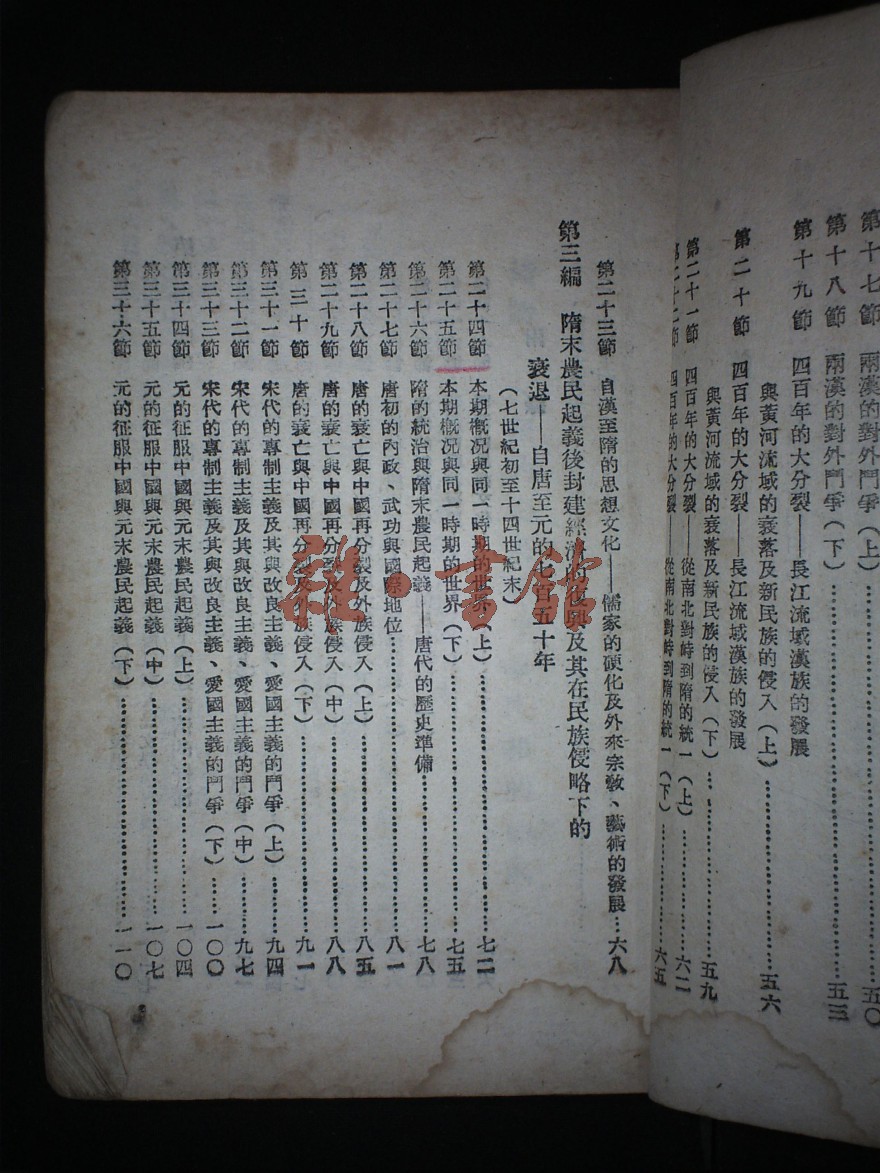 第十七節 兩漢的對外鬥爭（上）………五〇
第十八節 兩漢的對外鬥爭（下）………五三
第十九節 四百年的大分裂——長江流域漢族的發展
與黃河流域的衰落及新民族的侵入（上）………五六
第二十節 四百年的大分裂——長江流域漢族的發展
與黃河流域的衰落及新民族的侵入（下）………五九
第二十一節 四百年的大分裂——從南北對峙到隋的統一（上）………六二
第二十二節 四百年的大分裂——從南北對峙到隋的統一（下）………六五
第二十三節 自漢至隋的思想文化——儒家的硬化及外來宗教、藝術的發展…六八
第三編 隋末農民起義後封建經濟的復興及其在民族侵略下的
衰退——自唐至元的七百五十年
（七世紀初至十四世紀末）
第二十四節 本期概況與同一時期的世界（上）………七二
第二十五節 本期概況與同一時期的世界（下）………七五
第二十六節 隋的統治與隋末農民起義——唐代的歷史準備………七八
第二十七節 唐初的內政、武功與國際地位………八一
第二十八節 唐的衰亡與中國再分裂及外族侵入（上）………八五
第二十九節 唐的衰亡與中國再分裂及外族侵入（中）………八八
第三十節 唐的衰亡與中國再分裂及外族侵入（下）………九一
第三十一節 宋代的專制主義及其與改良主義、愛國主義的鬥爭（上）………九四
第三十二節 宋代的專制主義及其與改良主義、愛國主義的鬥爭（中）………九七
第三十三節 宋代的專制主義及其與改良主義、愛國主義的鬥爭（下）……一〇〇
第三十四節 元的征服中國與元末農民起義（上）………一〇四
第三十五節 元的征服中國與元末農民起義（中）………一〇七
第三十六節 元的征服中國與元末農民起義（下）………一一〇
雜·書館